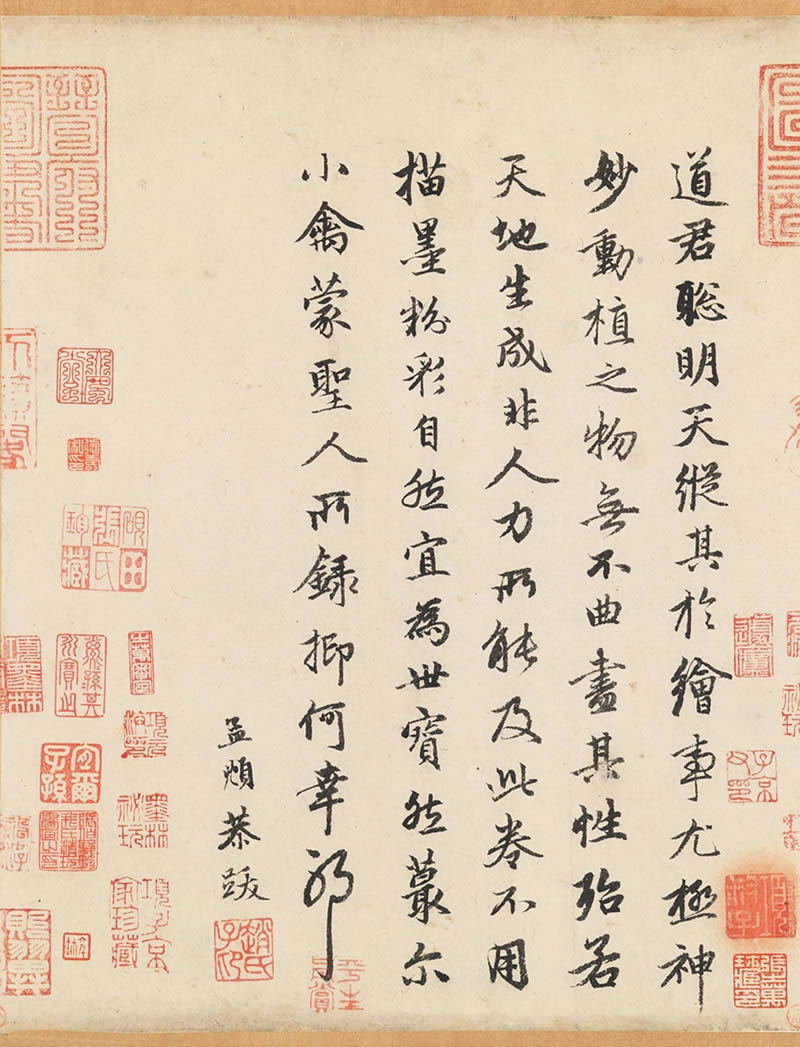 道君聰明天縱其於繪事尤極神
妙動植之物無不曲盡其性殆若
天地生成非人力所能及此卷不用
描墨粉彩自然宜為世寶然蕞尔
小禽蒙聖人所錄抑何幸耶
孟頫恭跋
宜爾子孫
墨林祕玩
項子京家珍藏